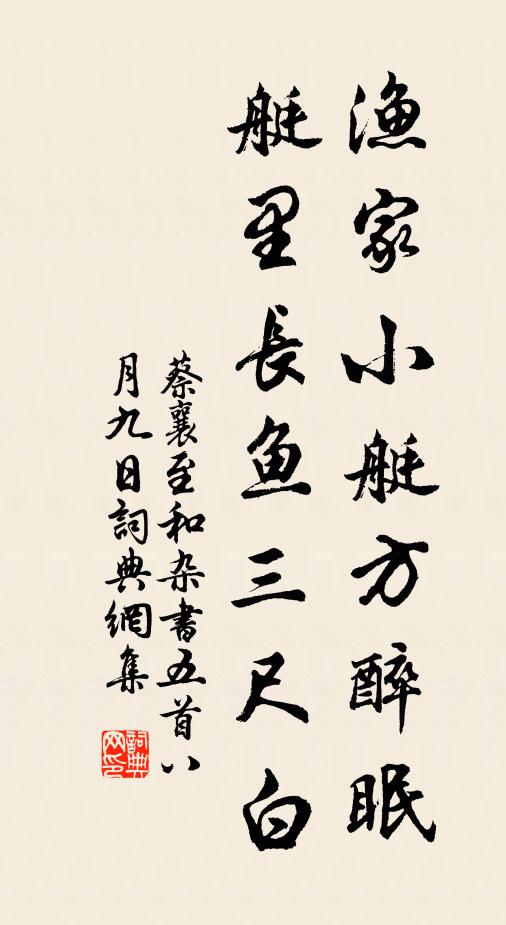 渔家小艇方醉眠
艇里長鱼三尺白
蔡襄至和杂書五首八
月九日詞典網集
詞典
网印